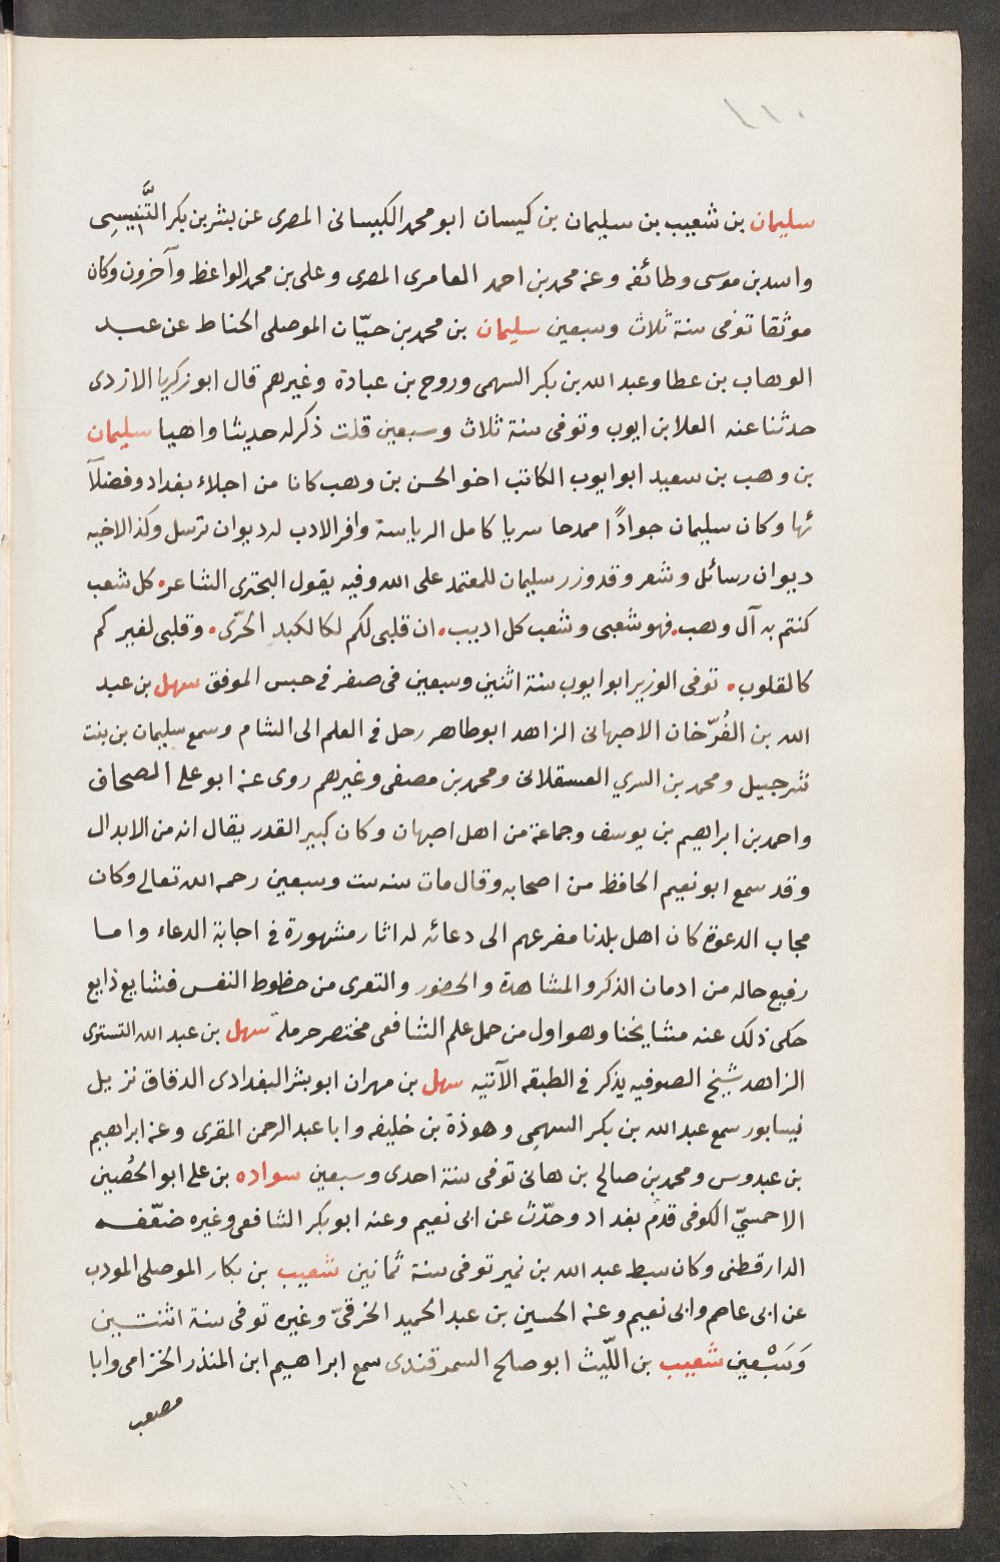 ١١٠
سليمان بن شعيب بن سليمان بن كيسان ابو محمد الكيسانى المصرى عن بشر بن بكر التّنِّيسِى
واسد بن موسى وطائفه وعنه محمد بن احمد العامرى المصرى وعلى بن محمد الواعظ وآخرون وكان
موثقا توفى سنة ثلاث وسبعين سليمان بن محمد بن حيّان الموصلى الحناط عن عبد
الوهاب بن عطا وعبد الله بن بكر السهمى وروح بن عبادة وغيرهم قال ابو زكريا الازدى
حدثنا عنه العلا بن ايوب وتوفى سنة ثلاث وسبعين قلت ذكر له حديثا واهيا سليمان
بن وهب بن سعيد ابو ايوب الكاتب اخو الحسن بن وهب كانا من اجلاء بغداد وفضلآ
ئها وكان سليمان جوادًا ممدحا سريا كامل الرياسة وافر الادب له ديوان ترسل وكذا لاخيه
ديوان رسائل وشعر وقد وزر سليمان للمعتمد على الله وفيه يقول البحترى الشاعر. كل شعب
كنتم به آل وهب. فهو شعبى وشعب كل اديب. ان قلبى لكم لكالكبدِ الحرّى. وقلبى لغيركم
كالقلوب. توفى الوزير ابو ايوب سنة اثنين وسبعين فى صفر فى حبس الموفق سهل بن عبد
الله بن الفُرّخان الاصبهانى الزاهد ابو طاهر رحل فى العلم الى الشام وسمع سليمان بن بنت
شرحبيل ومحمد بن السري العسقلانى ومحمد بن مصفى وغيرهم روى عنه ابو على الصحاف
واحمد بن ابراهيم بن يوسف وجماعة من اهل اصبهان وكان كبير القدر يقال انه من الابدال
وقد سمع ابو نعيم الحافظ من اصحابه وقال مات سنه ست وسبعين رحمه الله تعالى وكان
مجاب الدعوة كان اهل بلدنا مفزعهم الى دعائه له اثار مشهورة فى اجابة الدعاء واما
رفيع حاله من ادمان الذكر والمشاهدة والحضور والتعرى من حظوظ النفس فشايع ذايع
حكى ذلك عنه مشايخنا وهو اول من حمل علم الشافعى مختصر حرملة سهل بن عبد الله التسترى
الزاهد شيخ الصوفيه يذكر فى الطبقه الآتيه سهل بن مهران ابو بشر البغدادى الدقاق نزيل
نيسابور سمع عبد الله بن بكر السهمى وهوذة بن خليفه وابا عبد الرحمن المقرى وعنه ابراهيم
بن عبدوس ومحمد بن صالح بن هانى توفى سنة احدى وسبعين سواده بن على ابو الحُصين
الاحمسيّ الكوفى قدم بغداد وحدّث عن ابى نعيم وعنه ابو بكر الشافعى وغيره ضعّفه
الدارقطنى وكان سبط عبد الله بن نمير توفى سنة ثمانين شعيب بن بكار الموصلى المودب
عن ابى عاصم وابى نعيم وعنه الحسين بن عبد الحميد الخرقىّ وغيره توفى سنة اثنتين
وَسَبْعين شعيب بن اللّيث ابو صلح السمرقندى سمع ابراهيم ابن المنذر الحزامى وابا
مصعب